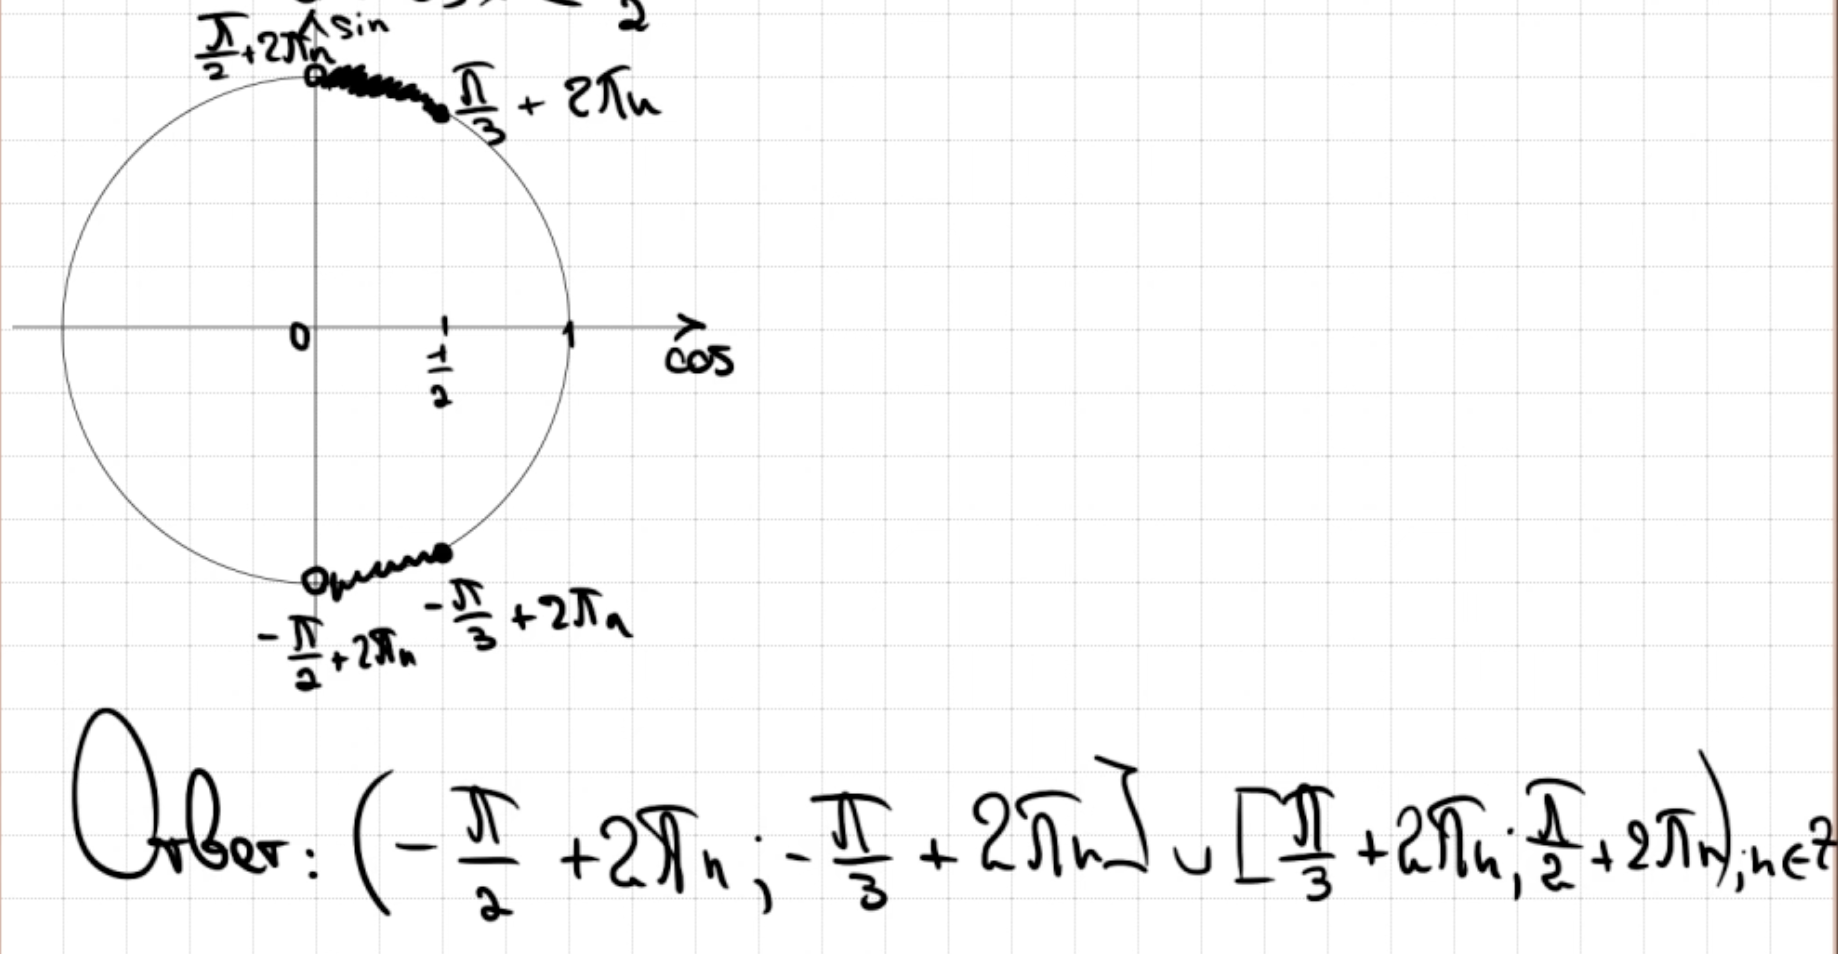 2
sin
π/2 + 2πn
π/3 + 2πn
0
1/2
1
cos
-π/3 + 2πn
-π/2 + 2πn
Ответ: (-π/2 + 2πn; -π/3 + 2πn] ∪ [π/3 + 2πn; π/2 + 2πn); n∈Z